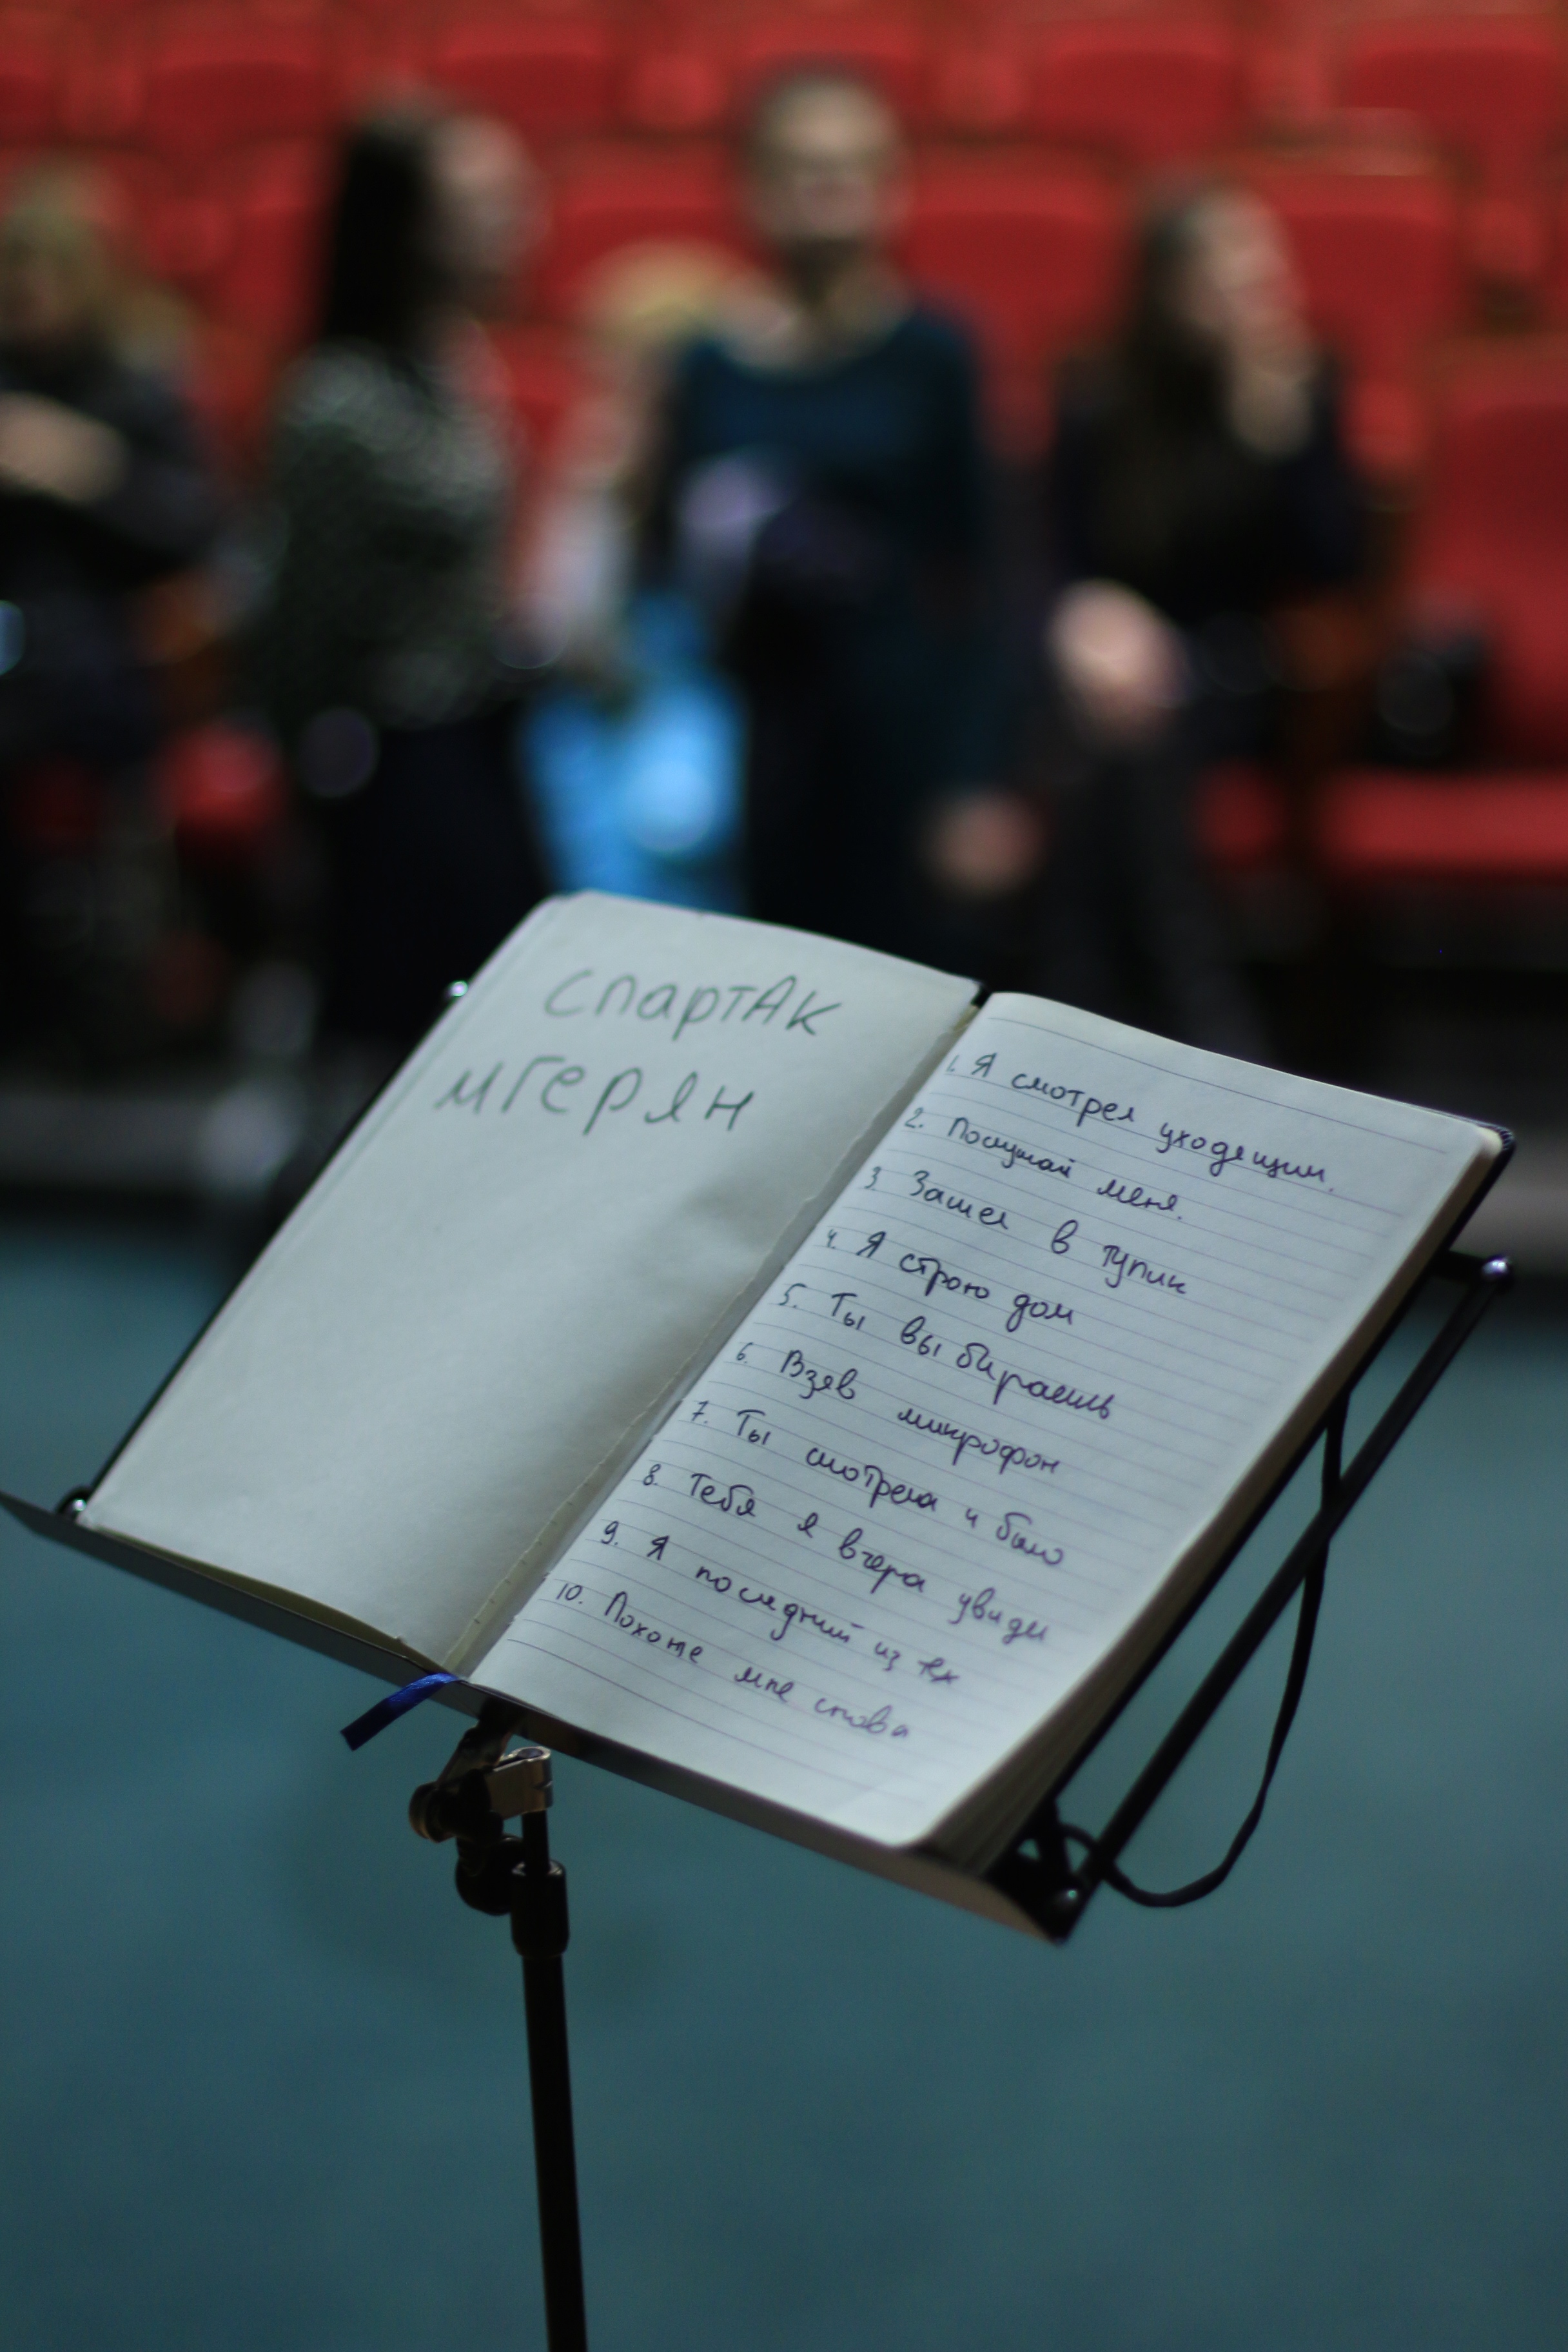 СПАРТАК
МГЕРЯН
1. Я смотрел уходящим.
2. Послушай меня.
3. Зашел в тупик
4. Я строю дом
5. Ты выбираешь
6. Взяв микрофон
7. Ты смотрела и было
8. Тебя я вчера увидел
9. Я последний из тех
10. Похоже мне снова